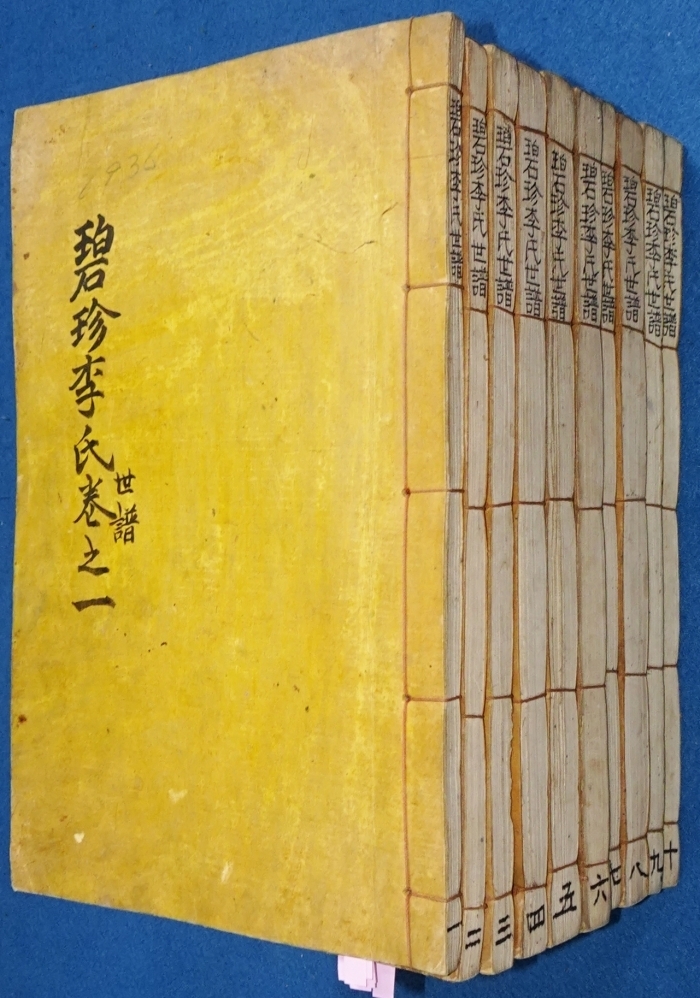 碧珍李氏卷之一
世譜
碧珍李氏世譜
碧珍李氏世譜
碧珍李氏世譜
碧珍李氏世譜
碧珍李氏世譜
碧珍李氏世譜
碧珍李氏世譜
碧珍李氏世譜
碧珍李氏世譜
碧珍李氏世譜
一
二
三
四
五
六
七
八
九
十